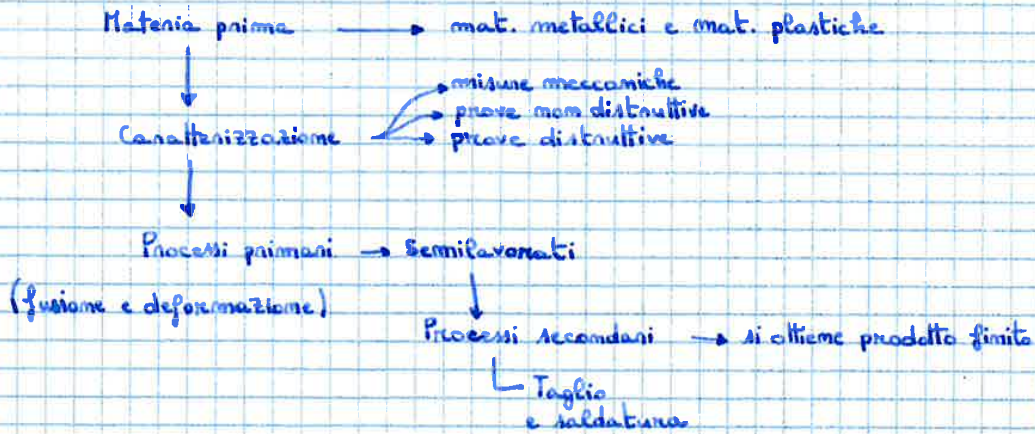 Materia prima → mat. metallici e mat. plastiche
misure meccaniche
prove non distruttive
Caratterizzazione → prove distruttive
Processi primari → Semilavorati
(fusione e deformazione)
Processi secondari → si ottiene prodotto finito
Taglio
e saldatura